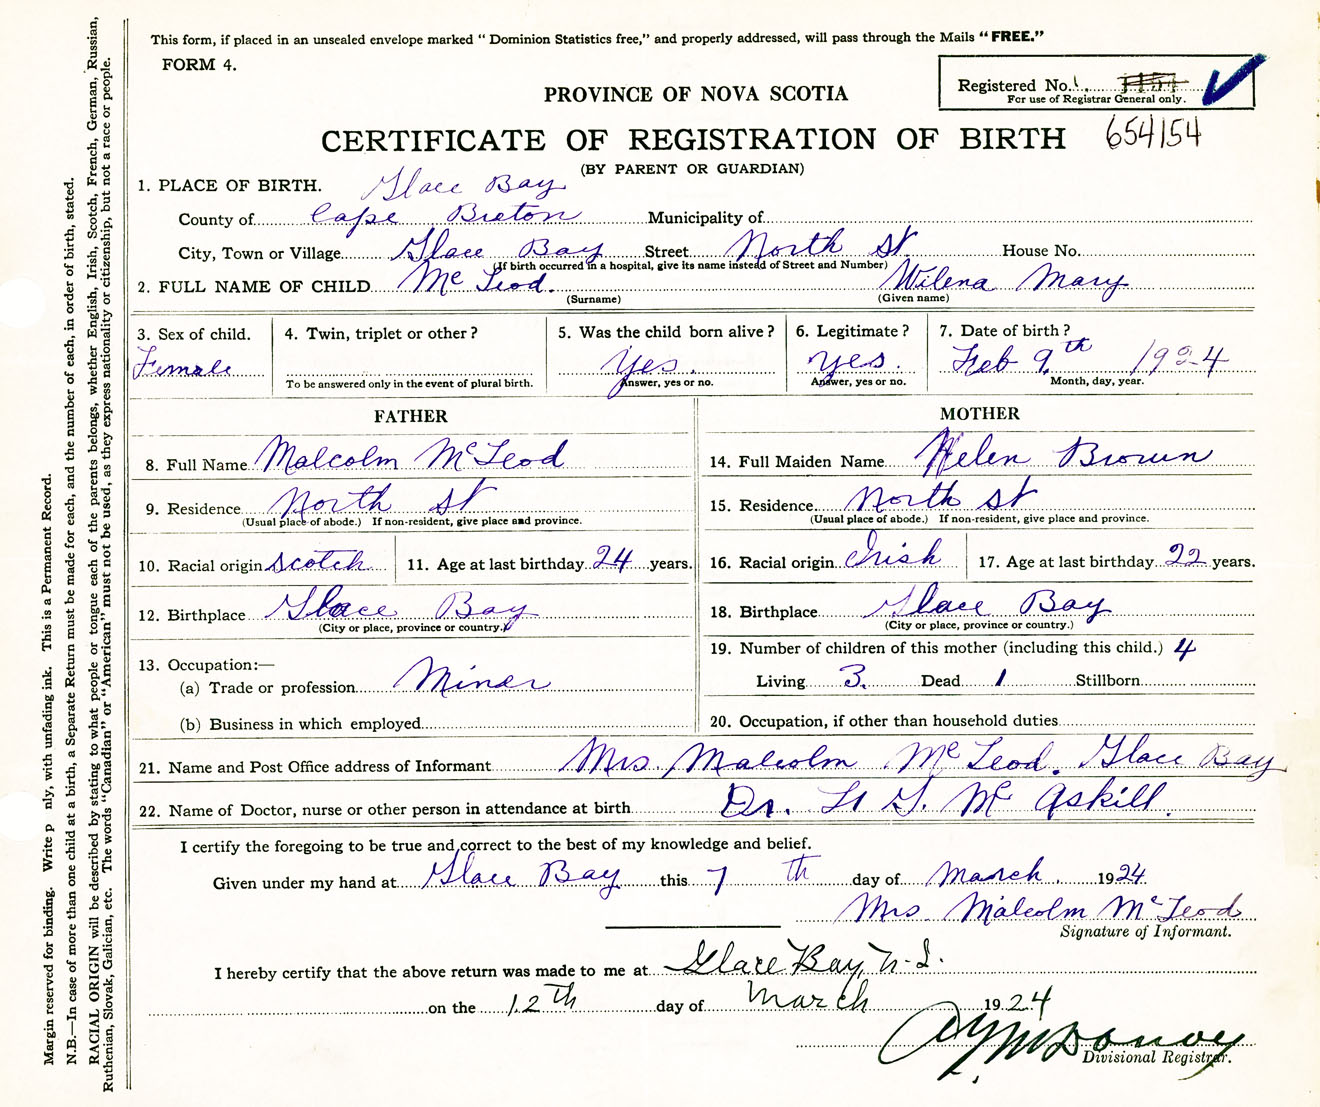 This form, if placed in an unsealed envelope marked “ Dominion Statistics free,” and properly addressed, will pass through the Mails “ FREE.”
FORM 4.
Registered No.
For use of Registrar General only.
PROVINCE OF NOVA SCOTIA
CERTIFICATE OF REGISTRATION OF BIRTH 654154
(BY PARENT OR GUARDIAN)
1. PLACE OF BIRTH. Glace Bay
County of Cape Breton Municipality of
City, Town or Village Glace Bay Street North St House No.
(If birth occurred in a hospital, give its name instead of Street and Number)
2. FULL NAME OF CHILD Mc Leod. Wilena Mary
(Surname) (Given name)
3. Sex of child. 4. Twin, triplet or other ? 5. Was the child born alive ? 6. Legitimate ? 7. Date of birth ?
Female Yes. Yes. Feb 9th 1924
To be answered only in the event of plural birth. Answer, yes or no. Answer, yes or no. Month, day, year.
FATHER MOTHER
8. Full Name Malcolm McLeod 14. Full Maiden Name Helen Brown
9. Residence North St 15. Residence North St
(Usual place of abode.) If non-resident, give place and province. (Usual place of abode.) If non-resident, give place and province.
10. Racial origin Scotch 11. Age at last birthday 24 years. 16. Racial origin Irish 17. Age at last birthday 22 years.
12. Birthplace Glace Bay 18. Birthplace Glace Bay
(City or place, province or country.) (City or place, province or country.)
13. Occupation:— 19. Number of children of this mother (including this child.) 4
(a) Trade or profession Miner Living 3. Dead 1 Stillborn
(b) Business in which employed 20. Occupation, if other than household duties
21. Name and Post Office address of Informant Mrs. Malcolm Mc Leod. Glace Bay
22. Name of Doctor, nurse or other person in attendance at birth Dr. Mc Askill.
I certify the foregoing to be true and correct to the best of my knowledge and belief.
Given under my hand at Glace Bay this 7 th day of March. 1924
Mrs. Malcolm McLeod
Signature of Informant.
I hereby certify that the above return was made to me at Glace Bay, N.S.
on the 12th day of March 1924
Divisional Registrar.
Margin reserved for binding. Write p nly, with unfading ink. This is a Permanent Record.
N.B.—In case of more than one child at a birth, a Separate Return must be made for each, and the number of each, in order of birth, stated.
RACIAL ORIGIN will be described by stating to what people or tongue each of the parents belongs, whether English, Irish, Scotch, French, German, Russian,
Ruthenian, Slovak, Galician, etc. The words “Canadian” or “American” must not be used, as they express nationality or citizenship, but not a race or people.